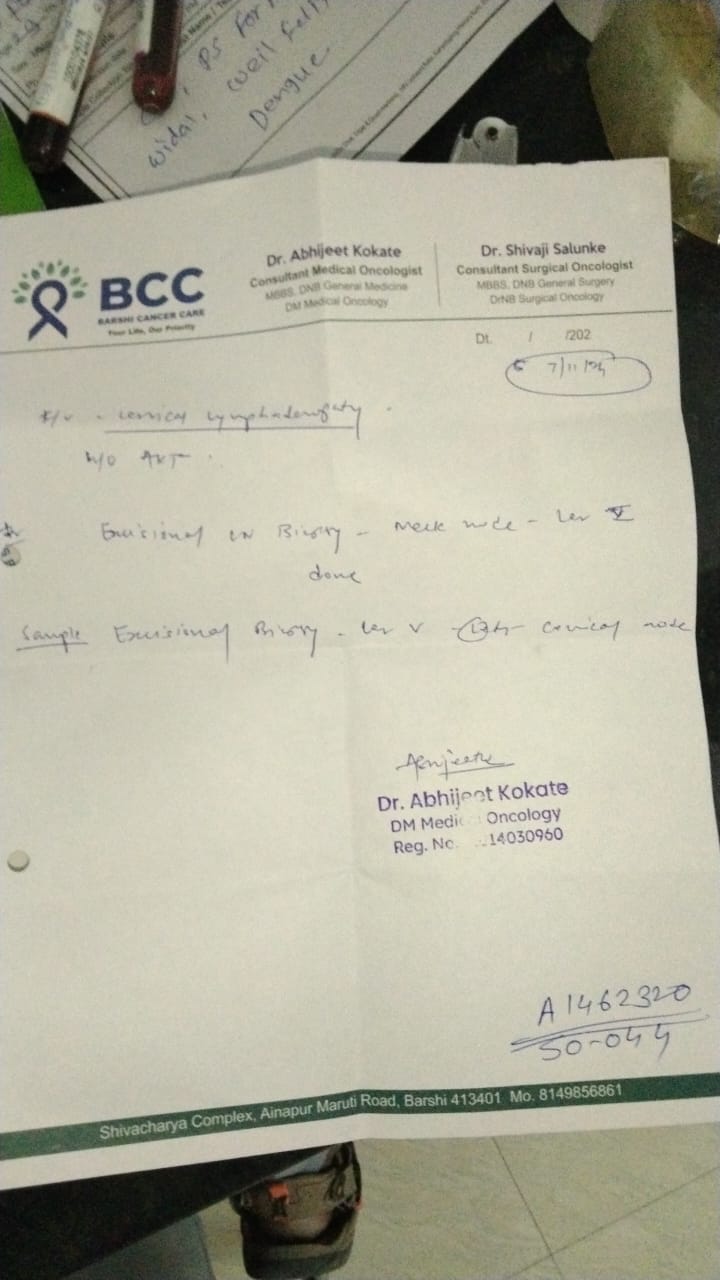 PS For M
widal, weil felix
Dengue
BCC
BARSHI CANCER CARE
Your Life, Our Priority
Dr. Abhijeet Kokate
Consultant Medical Oncologist
MBBS, DNB General Medicine
DM Medical Oncology
Dr. Shivaji Salunke
Consultant Surgical Oncologist
MBBS, DNB General Surgery
DrNB Surgical Oncology
Dt. / /202
7/11/25
cervical lymphadenopathy
H/O AKT
Excisional LN Biopsy - Neck node - Lev V
done
Sample Excisional Biopsy - Lev V cervical node
Dr. Abhijeet Kokate
DM Medic Oncology
Reg. No. 14030960
A1462320
50-044
Shivacharya Complex, Ainapur Maruti Road, Barshi 413401 Mo. 8149856861